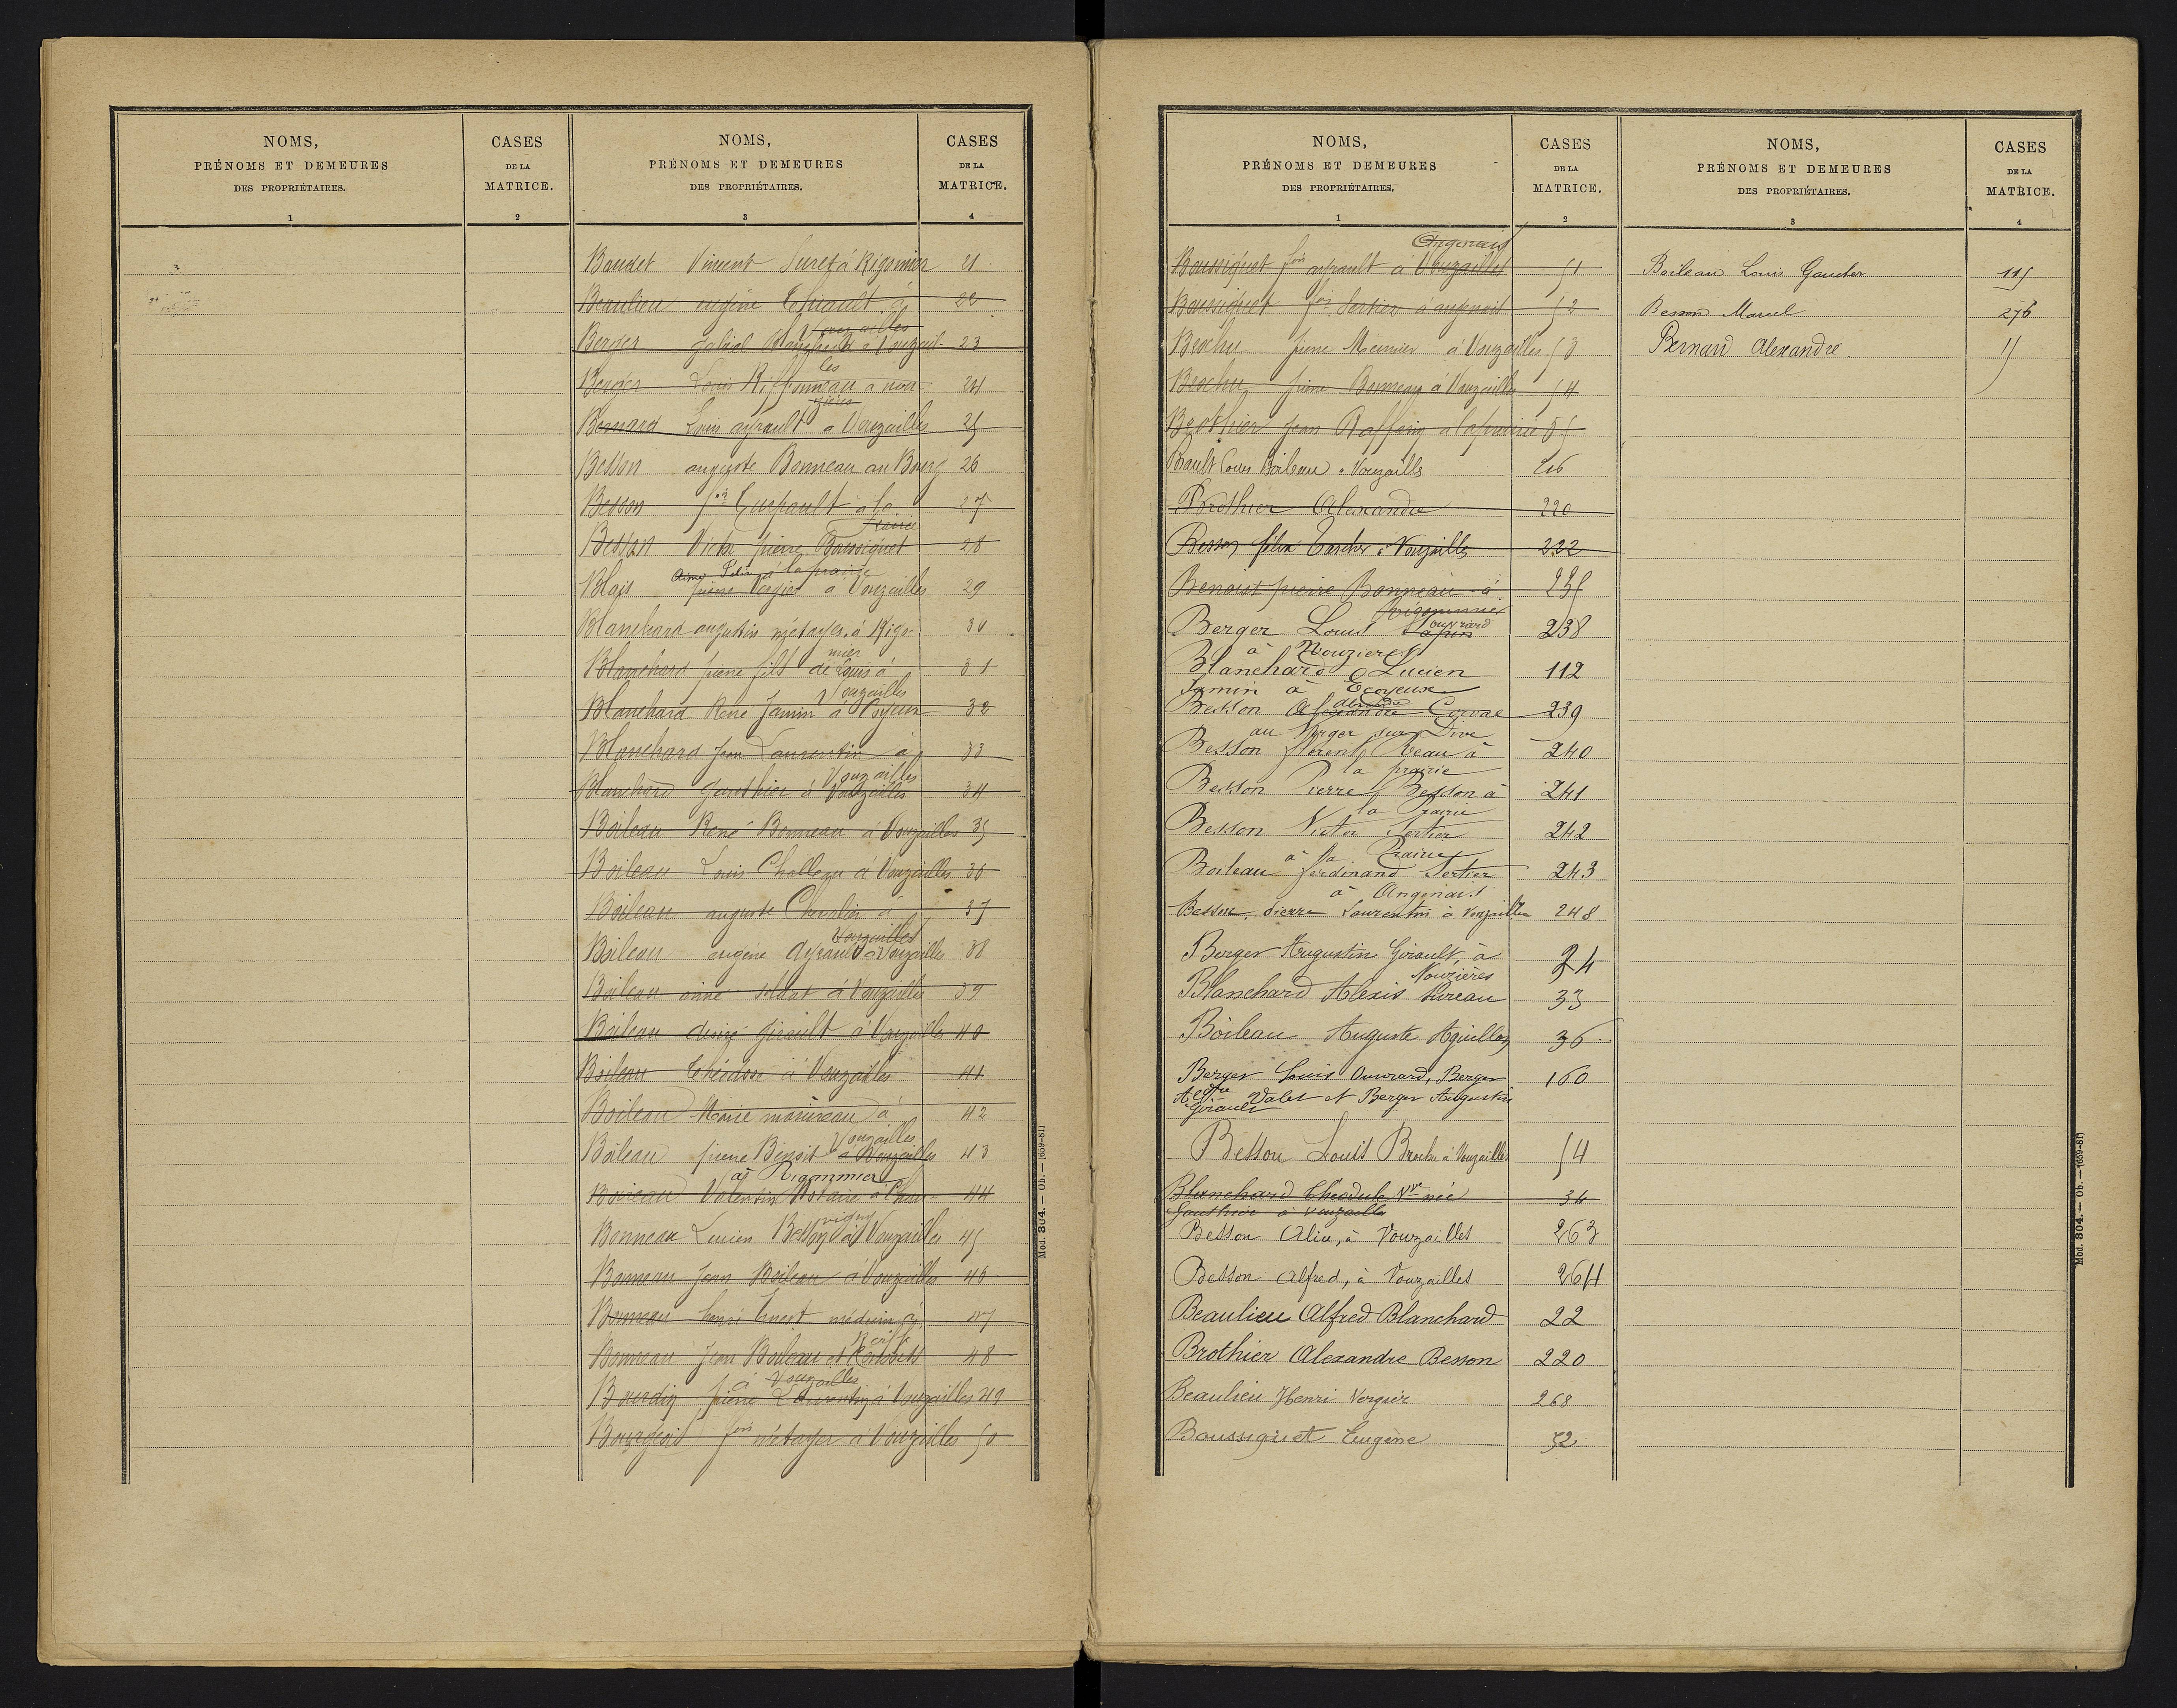 NOMS,
PRÉNOMS ET DEMEURES
DES PROPRIÉTAIRES.
1
CASES
DE LA
MATRICE.
2
NOMS,
PRÉNOMS ET DEMEURES
DES PROPRIÉTAIRES.
3
CASES
DE LA
MATRICE.
4
Baudet Vincent Suret à Rigomier 21
Beaulieu eugène à 22
Vouzailles
Berger Blanchard à Vouzail- 23
les
Berger Louis Riffonneau à nou- 24
zières
Bernard Louis ayrault à Vouzailles 25
Besson auguste Bonneau au Bourg 26
Besson fois à la 27
Prairie
Besson Victor pierre Boussiquet 28
à la prairie
Blais pierre Vergier à Vouzailles 29
Blanchard augustin métayer à Rigo- 30
mier
Blanchard pierre fils de Louis à 31
Vouzailles
Blanchard René Jamin à 32
Blanchard Jean Laurentin à 33
Vouzailles
Blanchard Gauthier à Vouzailles 34
Boileau René Bonneau à Vouzailles 35
Boileau Louis à Vouzailles 36
Boileau auguste Chevalier à 37
Vouzailles
Boileau eugène Ayrault à Vouzailles 38
Boileau aimé soldat à Vouzailles 39
Boileau désiré girault à Vouzailles 40
Boileau Théodose à Vouzailles 41
Boileau à 42
Vouzailles
Boileau pierre Benoit à Vouzailles 43
à Rigommier
Boileau Valentin Notaire à Chau- 44
vigny
Bonneau Lucien Besson à Vouzailles 45
Bonneau Jean Boileau à Vouzailles 46
Bonneau henri Ernest médecin à 47
Bonneau Jean Boileau et 48
à Vouzailles
Bourdin pierre Laurentin à Vouzailles 49
Bourgeois fois métayer à Vouzailles 50
Mod. 304. — Ob. — (659-81)
NOMS,
PRÉNOMS ET DEMEURES
DES PROPRIÉTAIRES.
1
CASES
DE LA
MATRICE.
2
NOMS,
PRÉNOMS ET DEMEURES
DES PROPRIÉTAIRES.
3
CASES
DE LA
MATRICE.
4
Anginais
Boussiquet fois ayrault à Vouzailles 51
Boussiquet fois Sertier à anginais 52
Brochu pierre Meunier à Vouzailles 53
Brochu pierre Bonneau à Vouzailles 54
Brothier Jean Raffarin à la prairie 55
Boileau à Vouzailles 216
Brothier Alexandre 220
Besson félix à Vouzailles 222
Benoist pierre Bonneau à 235
Rigommier
Berger Louis ouvrard 238
à Nouzières
Blanchard Lucien 112
Jamin à Ecoyeux
Besson Alexandre 239
au Verger sur Dive
Besson florent à 240
la prairie
Besson Pierre Besson à 241
la Prairie
Besson Victor Sertier 242
à la Prairie
Boileau ferdinand Sertier 243
à Anginais
Besson, Pierre Laurentin à Vouzailles 248
Berger Augustin Girault, à 24
Nouzières
Blanchard Alexis Pureau 33
Boileau Auguste Aguillon 36
Berger Louis Ouvrard, Berger 160
Valet et Berger Augustin
Girault
Besson Louis Brochu à Vouzailles 54
Blanchard Théodule Vve née 34
Gauthier à Vouzailles
Besson Alice, à Vouzailles 263
Besson Alfred, à Vouzailles 264
Beaulieu Alfred Blanchard 22
Brothier Alexandre Besson 220
Beaulieu Henri Vergier 268
Boussiquet Eugène 52
Boileau Louis Gaucher 115
Besson Marcel 276
Bernard Alexandre
Mod. 304. — Ob. — (659-81)